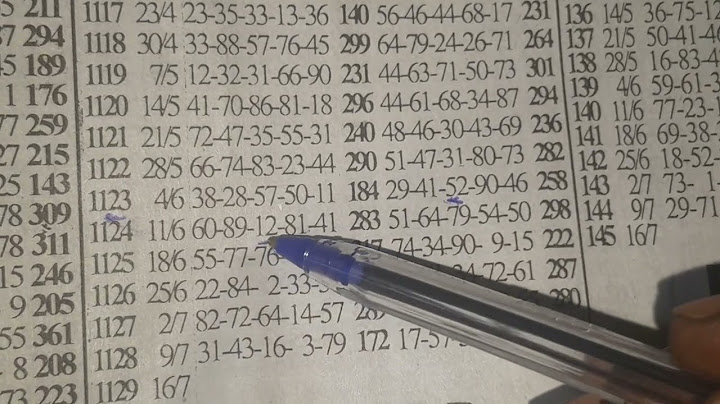 5 211 1117 23/4 23-35-33-13-36 140 56-46-44-68-17 231 136 14/5 36-75-1
37 294 1118 30/4 33-88-57-76-45 299 64-79-24-26-71 264 137 21/5 50-41-4
5 189 1119 7/5 12-32-31-66-90 231 44-63-71-50-73 301 138 28/5 16-83-4
1 176 1120 14/5 41-70-86-81-18 296 44-61-68-34-87 294 139 4/6 59-61-3
77 259 1121 21/5 72-47-35-55-31 240 48-46-30-43-69 236 140 11/6 77-23-1
27 215 1122 28/5 66-74-83-23-44 290 51-47-31-80-73 282 141 18/6 69-38-
25 143 1123 4/6 38-28-57-50-11 184 29-41-52-90-46 258 142 25/6 18-52-
78 309 1124 11/6 60-89-12-81-41 283 51-64-79-54-50 298 143 2/7 73- 1-
78 311 1125 18/6 55-77-76 74-34-90- 9-15 222 144 9/7 29-71
15 246 1126 25/6 22-84- 2-33- 72-61 287 145 16/7
9 205 1127 2/7 82-72-64-14-57
55 361 1128 9/7 31-43-16- 3-79 172 17-57
8 208 1129 16/7
73 223